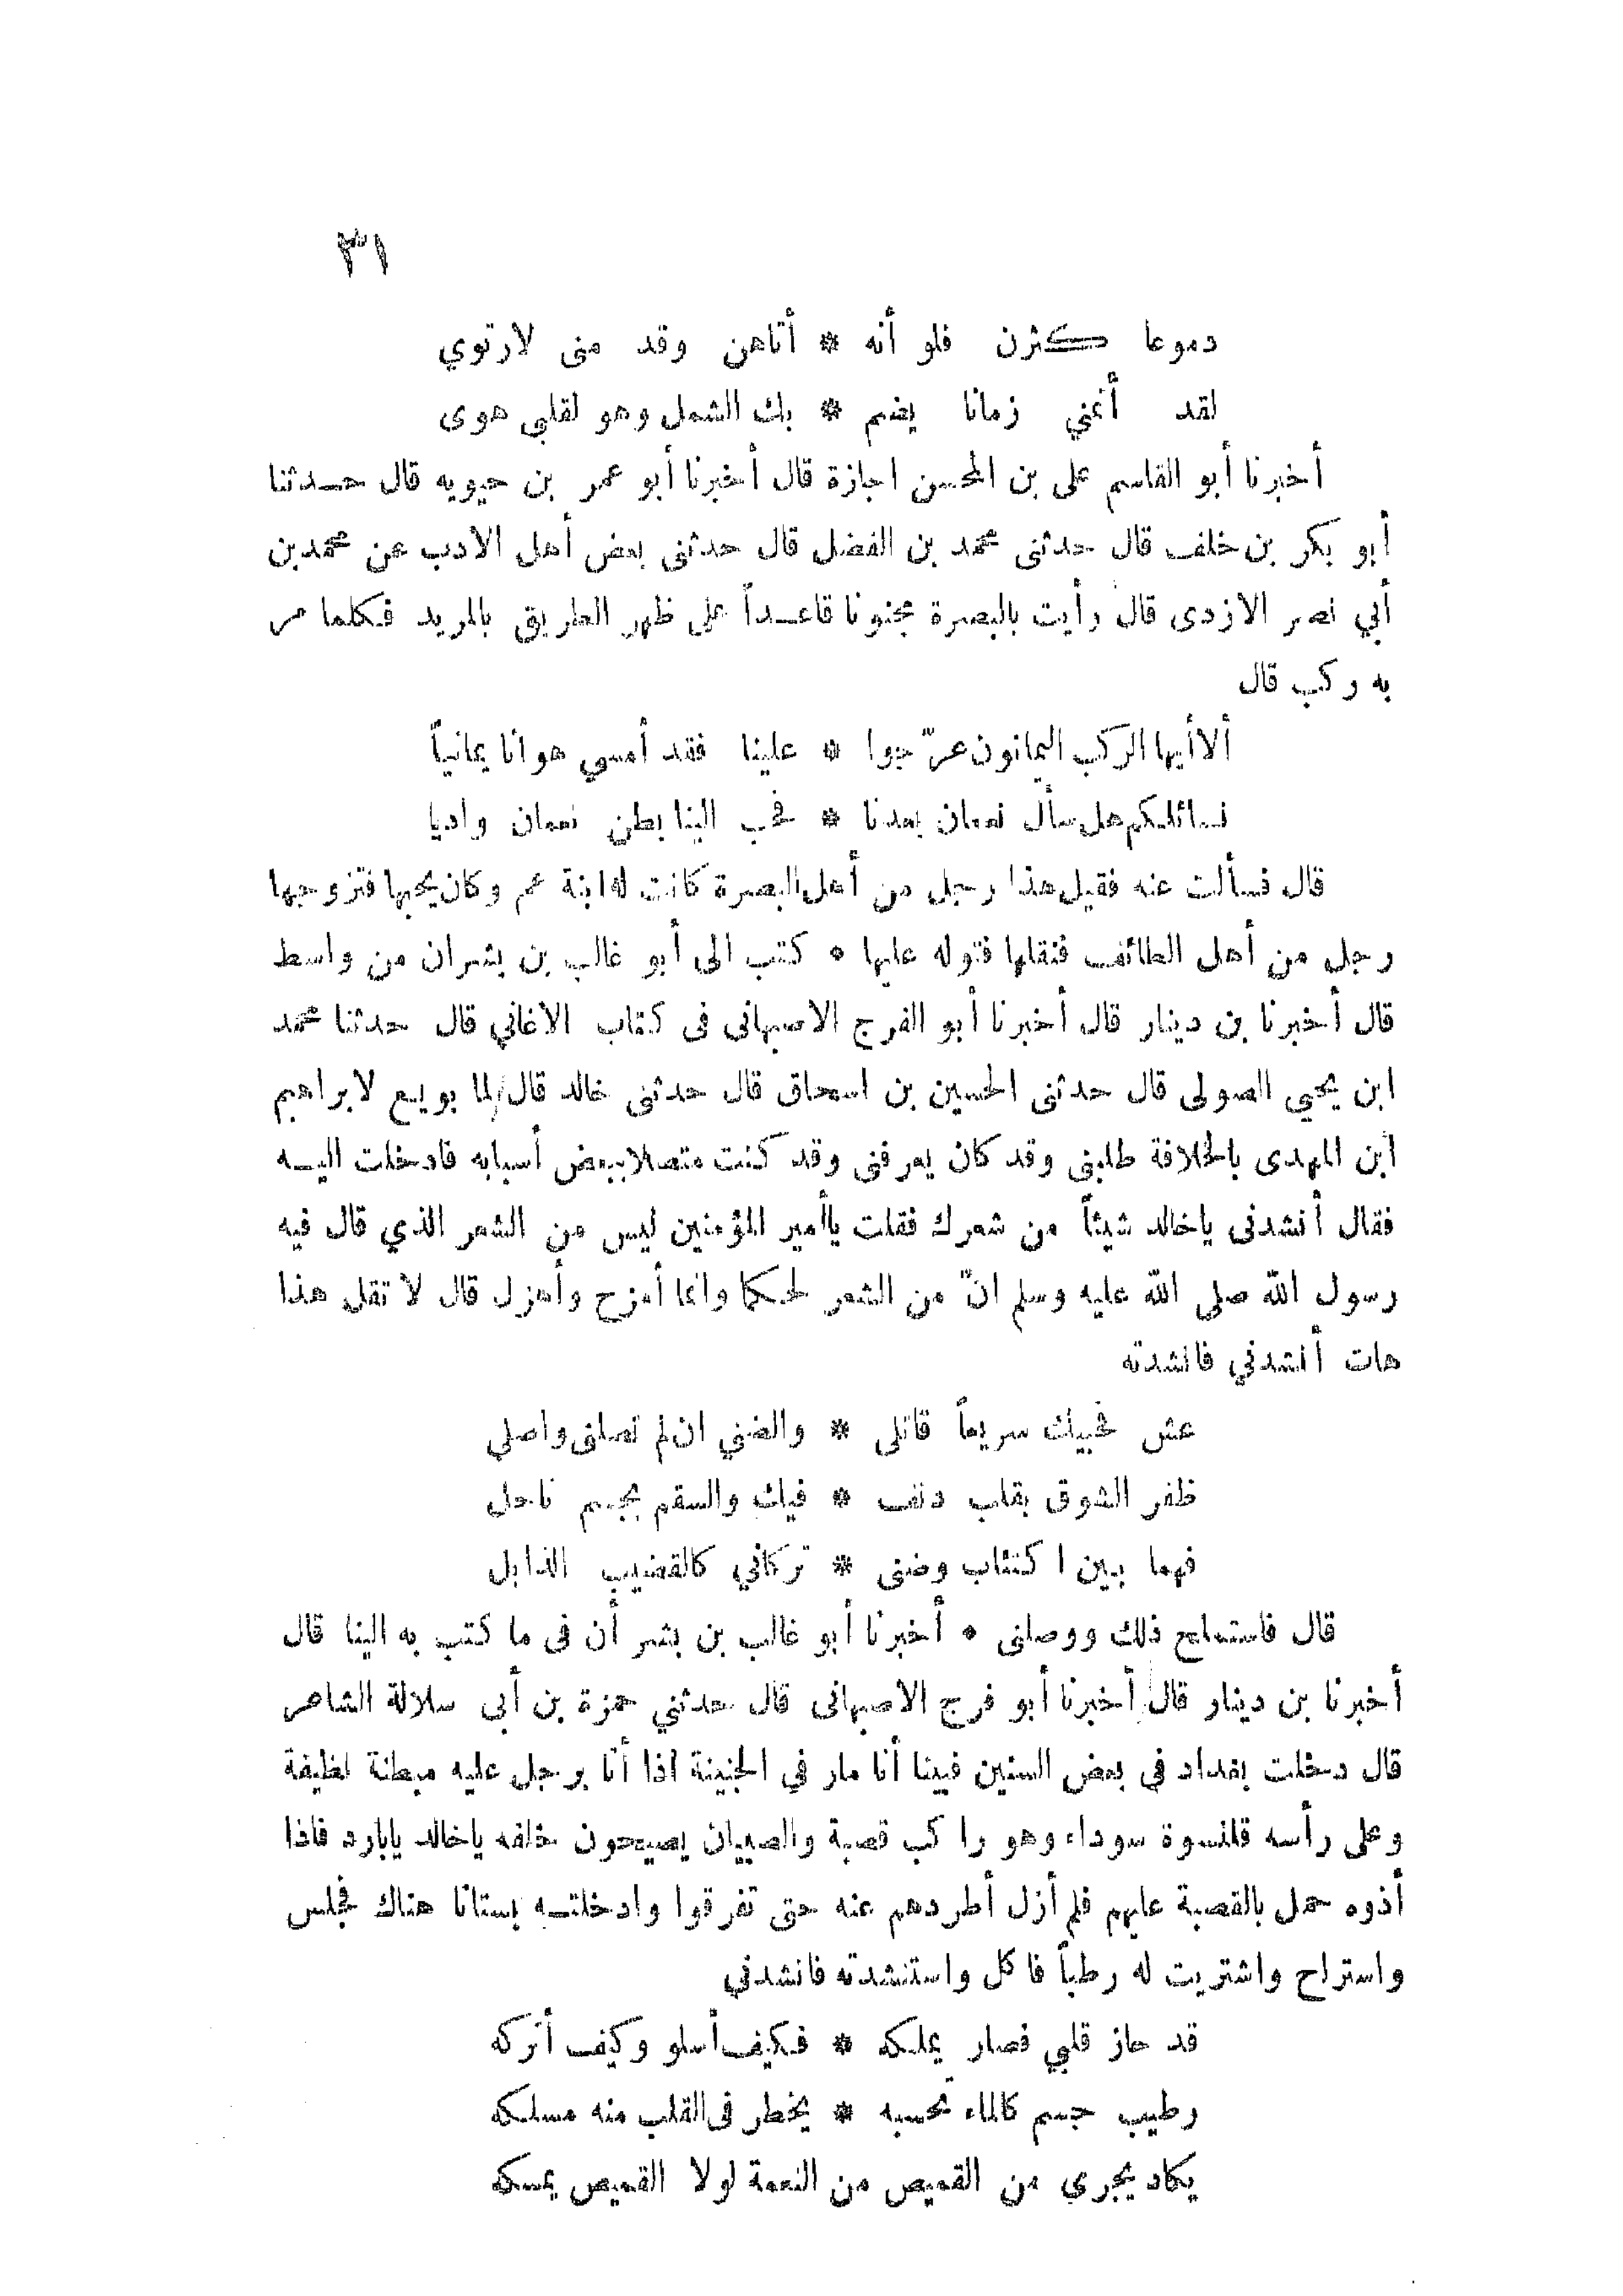 ٣١
دموعا كثرن فلو أنه * أتاهن وقد منى لارتوي
لقد أغني زمانا يضم * بك الشمل وهو لقلبي هوى
أخبرنا أبو القاسم على بن المحسن اجازة قال أخبرنا أبو عمر بن حيويه قال حدثنا
أبو بكر بن خلف قال حدثنى محمد بن الفضل قال حدثنى بعض أهل الادب عن محمد بن
أبي نصر الازدى قال رأيت بالبصرة مجنونا قاعداً على ظهر الطريق بالمربد فكلما مر
به ركب قال
ألا أيها الركب اليمانون عرّجوا * علينا فقد أمسي هوانا يمانياً
نسائلكم هل سأل نعمان بعدنا * فحب الينا بطن نعمان واديا
قال فسألت عنه فقيل هذا رجل من أهل البصرة كانت له ابنة عم وكان يحبها فتزوجها
رجل من أهل الطائف فنقلها فتوله عليها * كتب الى أبو غالب بن بشران من واسط
قال أخبرنا بن دينار قال أخبرنا أبو الفرج الاصبهانى فى كتاب الاغاني قال حدثنا محمد
ابن يحيي الصولى قال حدثنى الحسين بن اسحاق قال حدثنى خالد قال لما بويع لابراهيم
ابن المهدى بالخلافة طلبنى وقد كان يعرفنى وقد كنت متصلا ببعض أسبابه فادخلت اليه
فقال أنشدنى ياخالد شيئاً من شعرك فقلت ياأمير المؤمنين ليس من الشعر الذي قال فيه
رسول الله صلى الله عليه وسلم انّ من الشعر لحكما وانما أمزح وأهزل قال لا تقل هذا
هات أنشدني فانشدته
عش فحبيك سريعاً قاتلى * والضني ان لم تصلنى واصلي
ظفر الشوق بقلب دنف * فيك والسقم بجسم ناحل
فهما بين اكتئاب وضنى * تركاني كالقضيب الذابل
قال فاستملح ذلك ووصلنى * أخبرنا أبو غالب بن بشر أن فى ما كتب به الينا قال
أخبرنا بن دينار قال أخبرنا أبو فرج الاصبهانى قال حدثني حمزة بن أبى سلالة الشاعر
قال دخلت بغداد في بعض السنين فبينا أنا مار في الجنينة اذا أنا برجل عليه مبطنة لطيفة
وعلى رأسه قلنسوة سوداء وهو راكب قصبة والصبيان يصيحون خلفه ياخالد يابارد فاذا
أذوه حمل بالقصبة عليهم فلم أزل أطردهم عنه حتى تفرقوا وادخلته بستانا هناك فجلس
واستراح واشتريت له رطباً فاكل واستنشدته فانشدني
قد حاز قلبي فصار يملكه * فكيف أسلو وكيف أتركه
رطيب جسم كالماء تحسبه * يخطر فى القلب منه مسلكه
يكاد يجرى من القميص من النعمة لولا القميص يمسكه